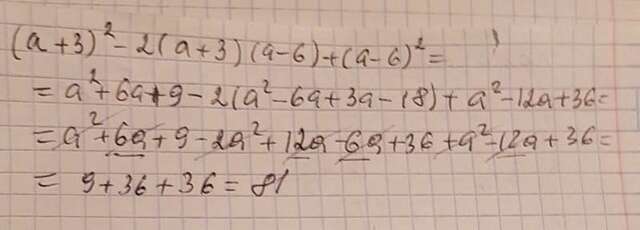 (a+3)² - 2(a+3)(a-6) + (a-6)² =
= a² + 6a + 9 - 2(a² - 6a + 3a - 18) + a² - 12a + 36 =
= a² + 6a + 9 - 2a² + 12a - 6a + 36 + a² - 12a + 36 =
= 9 + 36 + 36 = 81